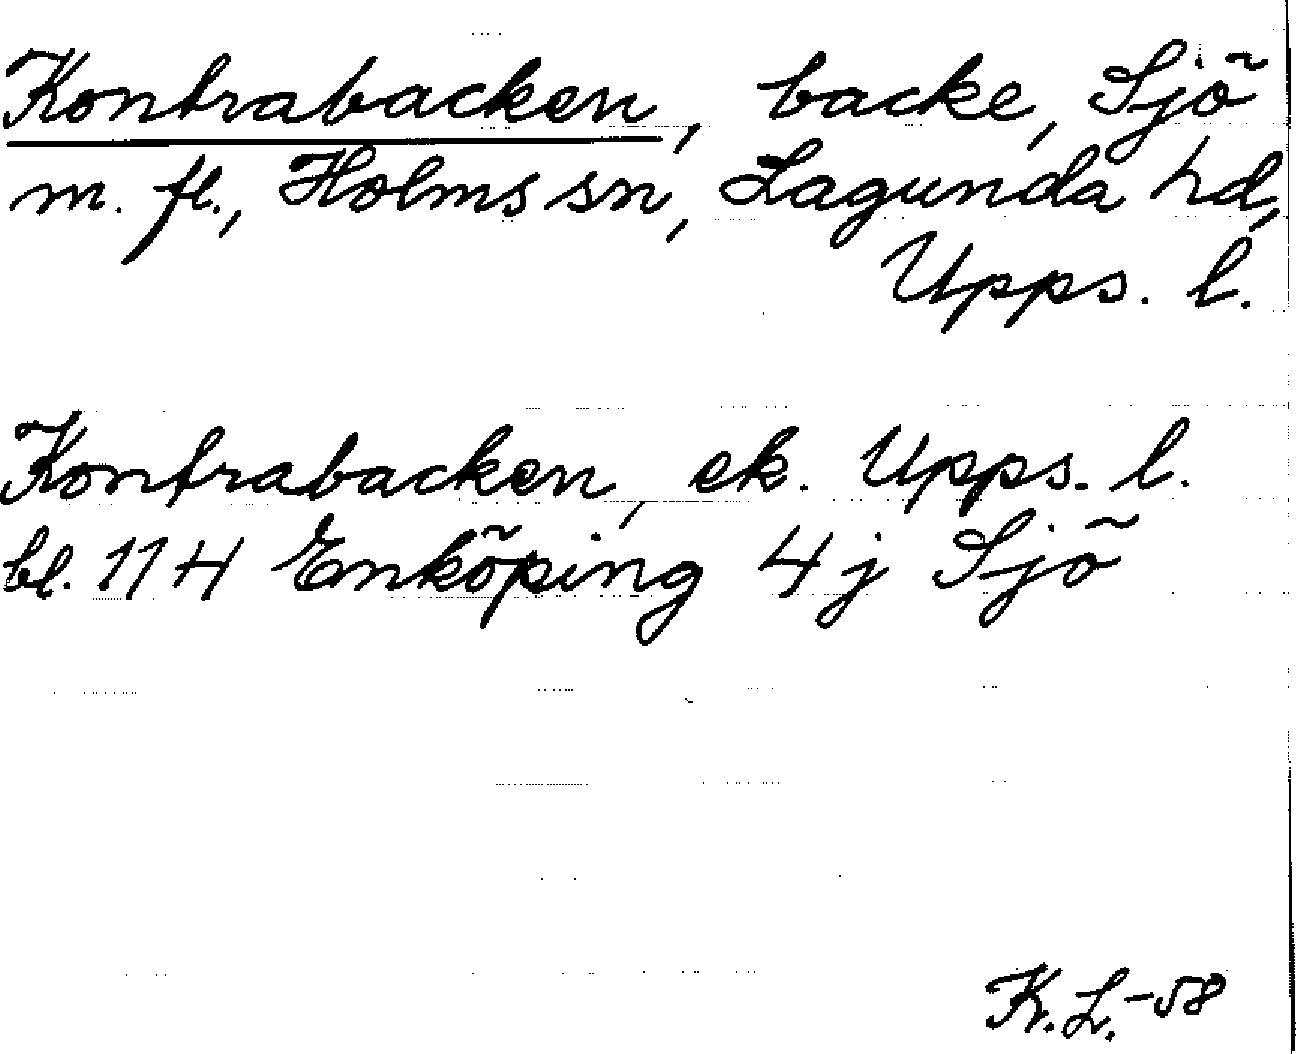 Kontrabacken, backe, Sjö
m. fl., Holms sn, Lagunda hd,
Upps. l.
Kontrabacken, ek. Upps. l.
bl. 114 Enköping 4j Sjö
K. L. -58